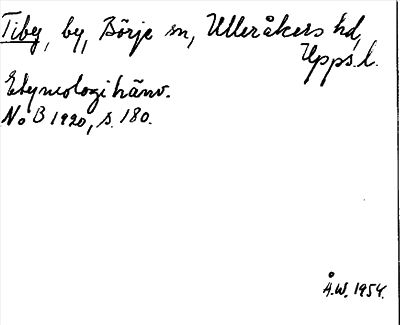 Tiby, by, Börje sn, Ulleråkers hd,
Upps.l.
Etymologihänv.
No B 1920, s. 180.
Å.W. 1954.